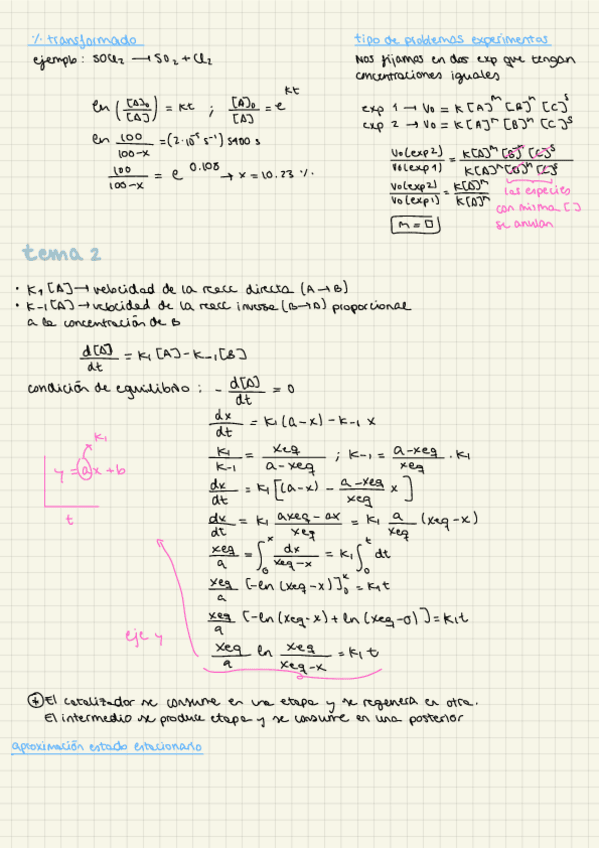 % transformado
ejemplo: SOCl2 → SO2 + Cl2
ln ([A]0/[A]) = Kt ; [A]0/[A] = e^Kt
ln 100/100-x = (2·10^-5 s^-1) 5400 s
100/100-x = e^0.108 → x = 10.23 %
tipo de problemas experimentos
Nos fijamos en dos exp que tengan
concentraciones iguales
exp 1 → Vo = K[A]^m [B]^n [C]^s
exp 2 → Vo = K[A]^m [B]^n [C]^s
Vo(exp2)/Vo(exp1) = K[A]^m [B]^n [C]^s/K[A]^m [B]^n [C]^s
Vo(exp2)/Vo(exp1) = K[A]^m/K[A]^m
las especies
con misma []
se anulan
m = □
tema 2
• K1 [A] → velocidad de la reacc directa (A → B)
• K-1 [A] → velocidad de la reacc inversa (B → A) proporcional
a la concentración de B
d[A]/dt = K1 [A] - K-1 [B]
condición de equilibrio : - d[A]/dt = 0
dx/dt = K1 (a-x) - K-1 x
K1/K-1 = xeq/a-xeq ; K-1 = a-xeq/xeq · K1
dx/dt = K1 [(a-x) - a-xeq/xeq x]
dx/dt = K1 axeq - ax/xeq = K1 a/xeq (xeq-x)
xeq/a = ∫0^x dx/xeq-x = K1 ∫0^t dt
xeq/a [-ln (xeq-x)]0^x = K1t
xeq/a [-ln (xeq-x) + ln (xeq-0)] = K1t
xeq/a ln xeq/xeq-x = K1 t
K1
y = ax + b
t
eje y
* El catalizador se consume en una etapa y se regenera en otra.
El intermedio se produce etapa y se consume en una posterior
aproximación estado estacionario